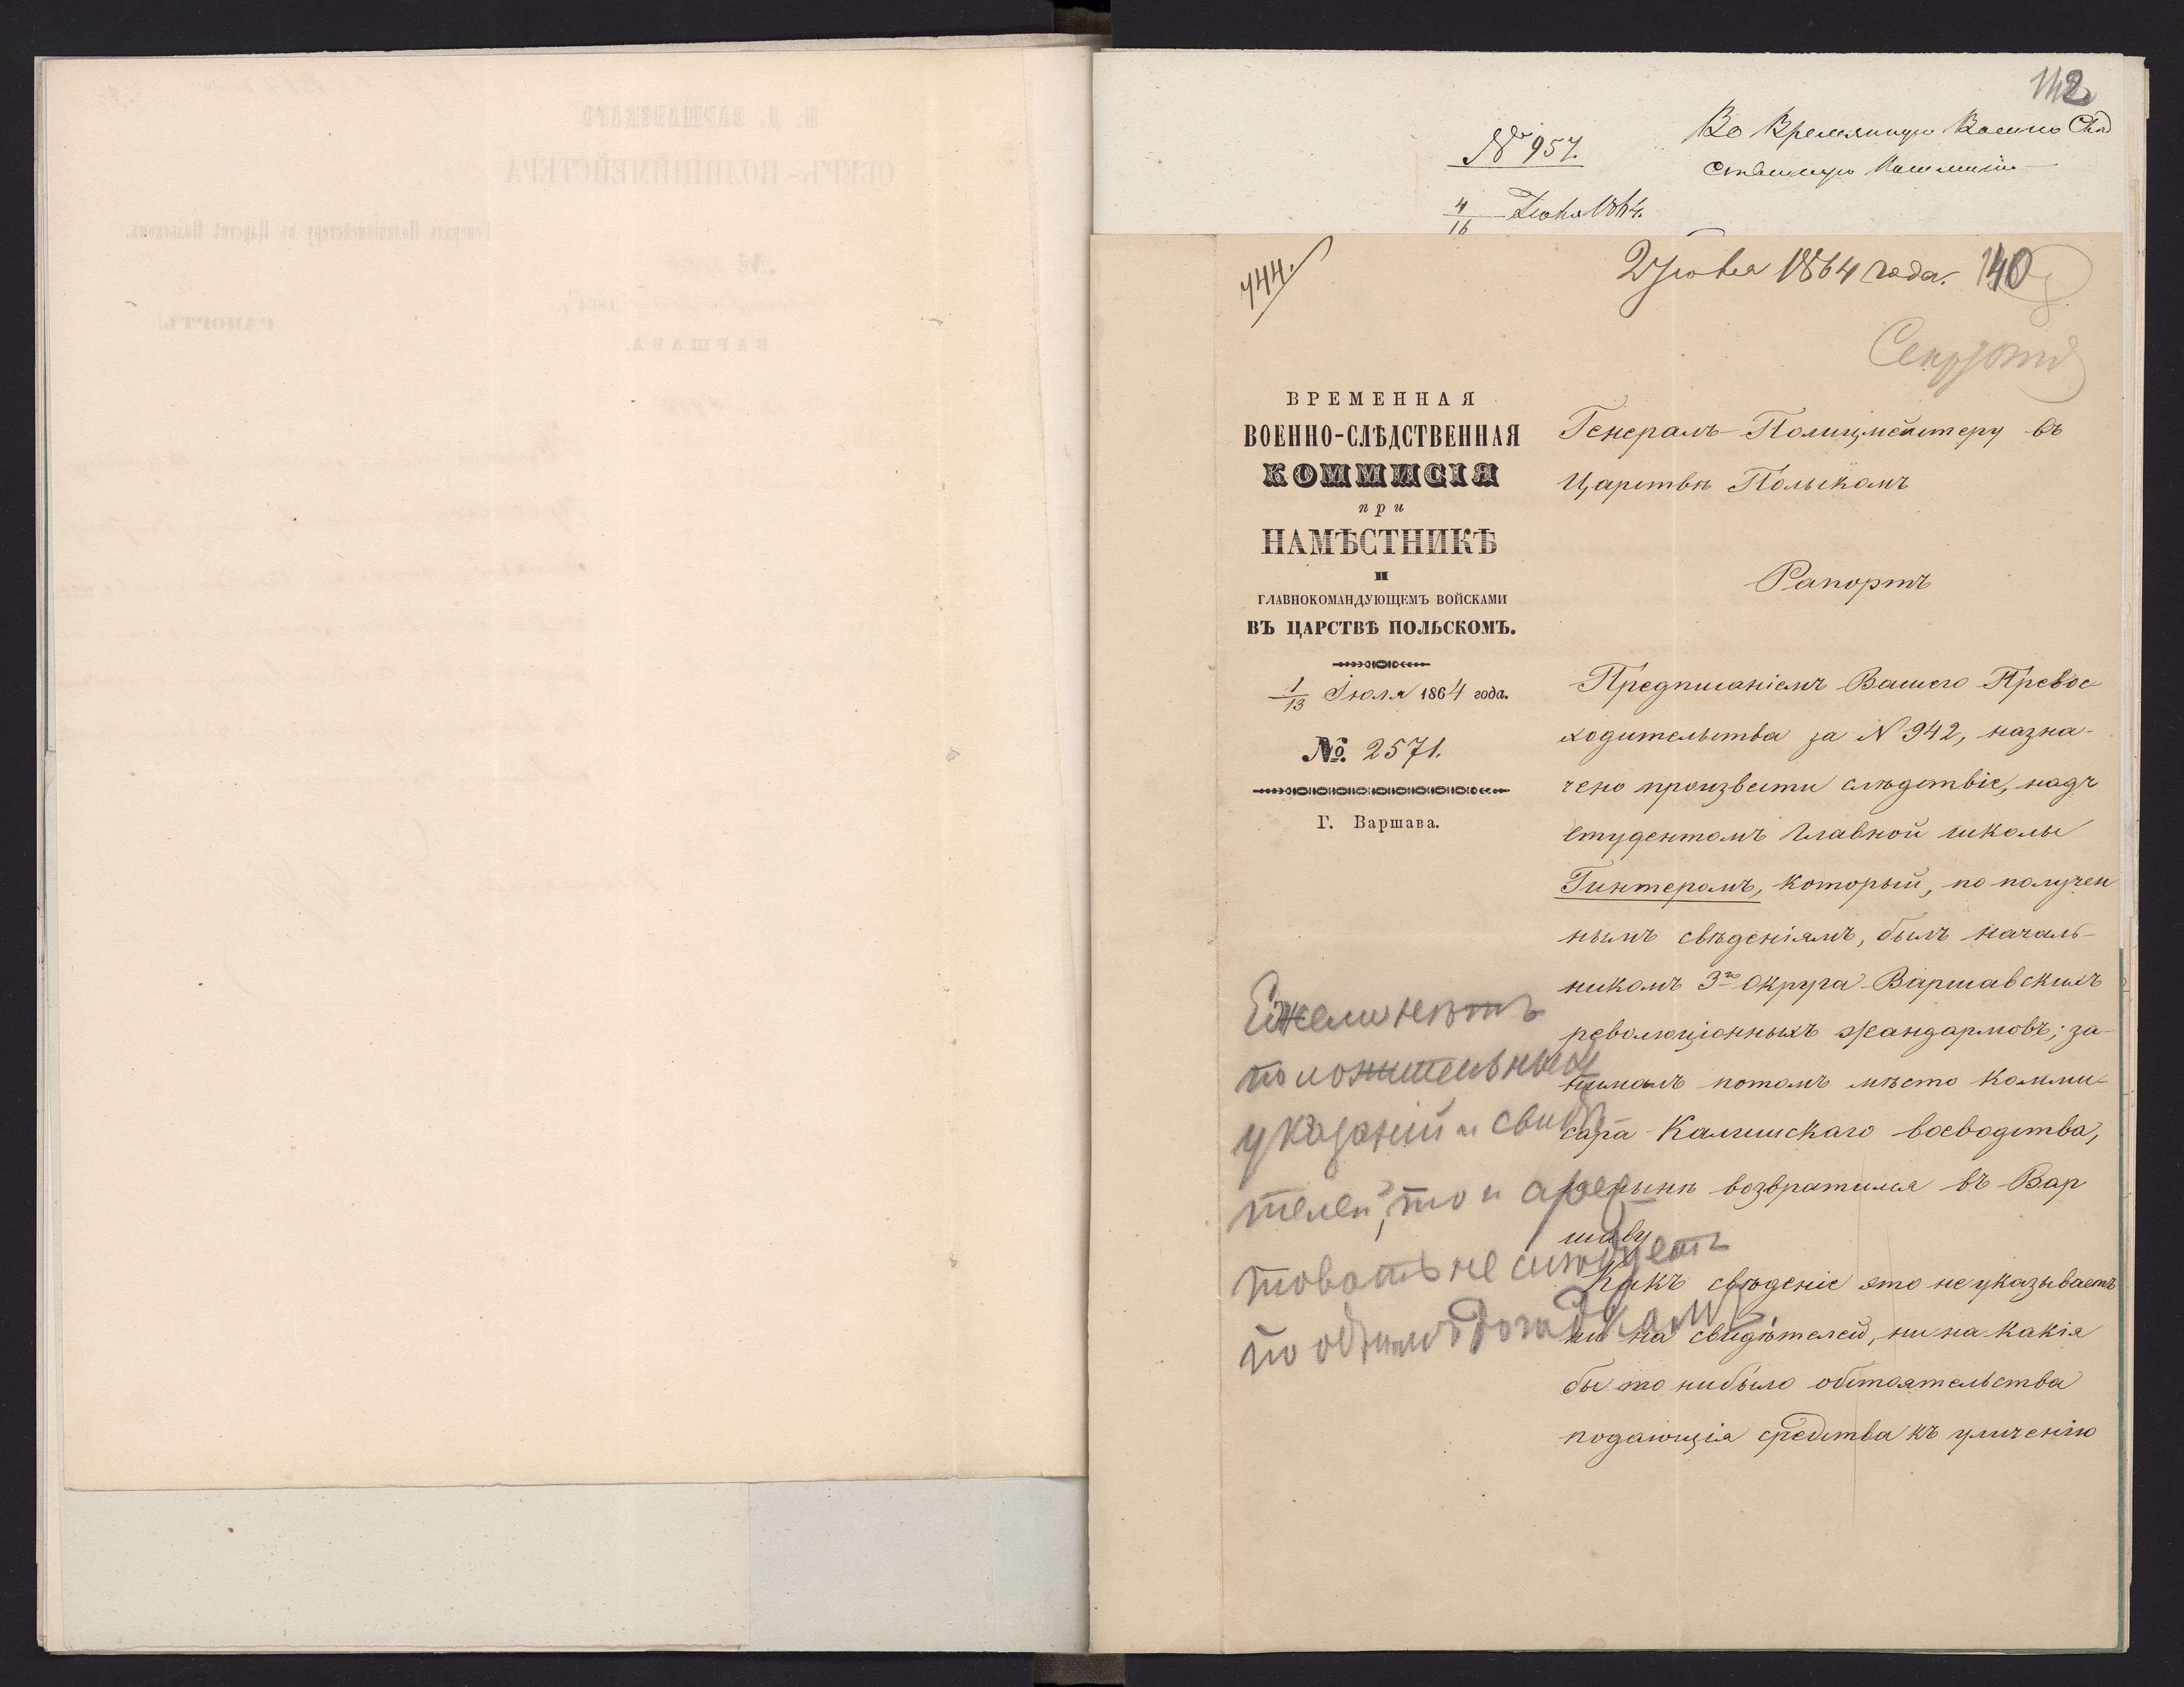 142
№ 957.
Во Временную Военно Слѣд
ственную Коммисію
4/16 Іюля 1864.
744.
2 Іюля 1864 года. 140
ВРЕМЕННАЯ
ВОЕННО-СЛѢДСТВЕННАЯ
КОММИСІЯ
при
НАМѢСТНИКѢ
И
ГЛАВНОКОМАНДУЮЩЕМЪ ВОЙСКАМИ
ВЪ ЦАРСТВѢ ПОЛЬСКОМЪ.
1/13 Іюля 1864 года.
№. 2571.
Г. Варшава.
Генералъ-Полицмейстеру въ
Царствѣ Польскомъ
Рапортъ
Предписаніемъ Вашего Превос
ходительства за N 942, назна-
чено произвести слѣдствіе, надъ
студентомъ Главной школы
Гинтеромъ, который, по получен
нымъ свѣденіямъ, былъ началь-
никомъ 3го Округа Варшавскихъ
революціонныхъ жандармовъ; за-
нималъ потомъ мѣсто комми-
сара Калишскаго воеводства,
а нынѣ возвратился въ Вар
шаву
Какъ свѣденіе это не указываетъ
ни на свидѣтелей, ни на какія
бы то нибыло обстоятельства
подающія средства къ уличенію
Ежели нѣтъ
положительныхъ
указаній и свидѣ
телей, то и арес
товать не слѣдуетъ
по однимъ догадкамъ
Н. Д. ВАРШАВСКАГО
ОБЕРЪ-ПОЛИЦІЙМЕЙСТЕРА
Генералъ Полиціймейстеру въ Царствѣ Польскомъ.
РАПОРТЪ.
ВАРШАВА.